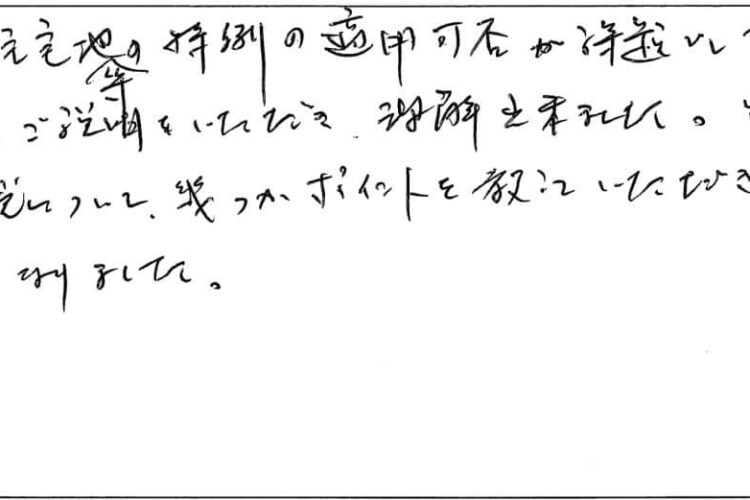 宅地等の特例の適用可否が課題でし
ご説明をいただき、理解出来ました。
について、幾つかポイントを教えていただき
なりました。